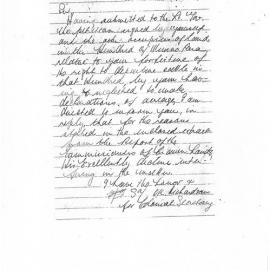 Having submitted to the Rt. Hon.
the petition signed by yourself
and the other occupiers of land
in the Hundred of
relative to your forfeiture of
the right to depasture cattle in
that Hundred by your hav-
ing neglected to make
declarations of acreage I am
directed to inform you, in
reply, that for the reasons
stated in the enclosed
from the Report of the
Commissioners of Crown Lands
His Excellency declines inter-
fering in the matter.
I have the honor &c
for Colonial Secretary